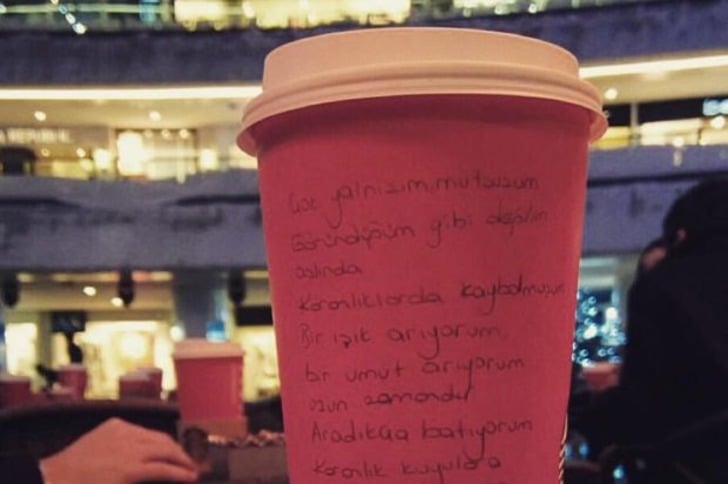 Çok yalnızım, mutsuzum
Göründüğüm gibi değilim
aslında
Karanlıklarda kaybolmuşum
Bir ışık arıyorum,
bir umut arıyorum
uzun zamandır
Aradıkça batıyorum
Karanlık kuyulara